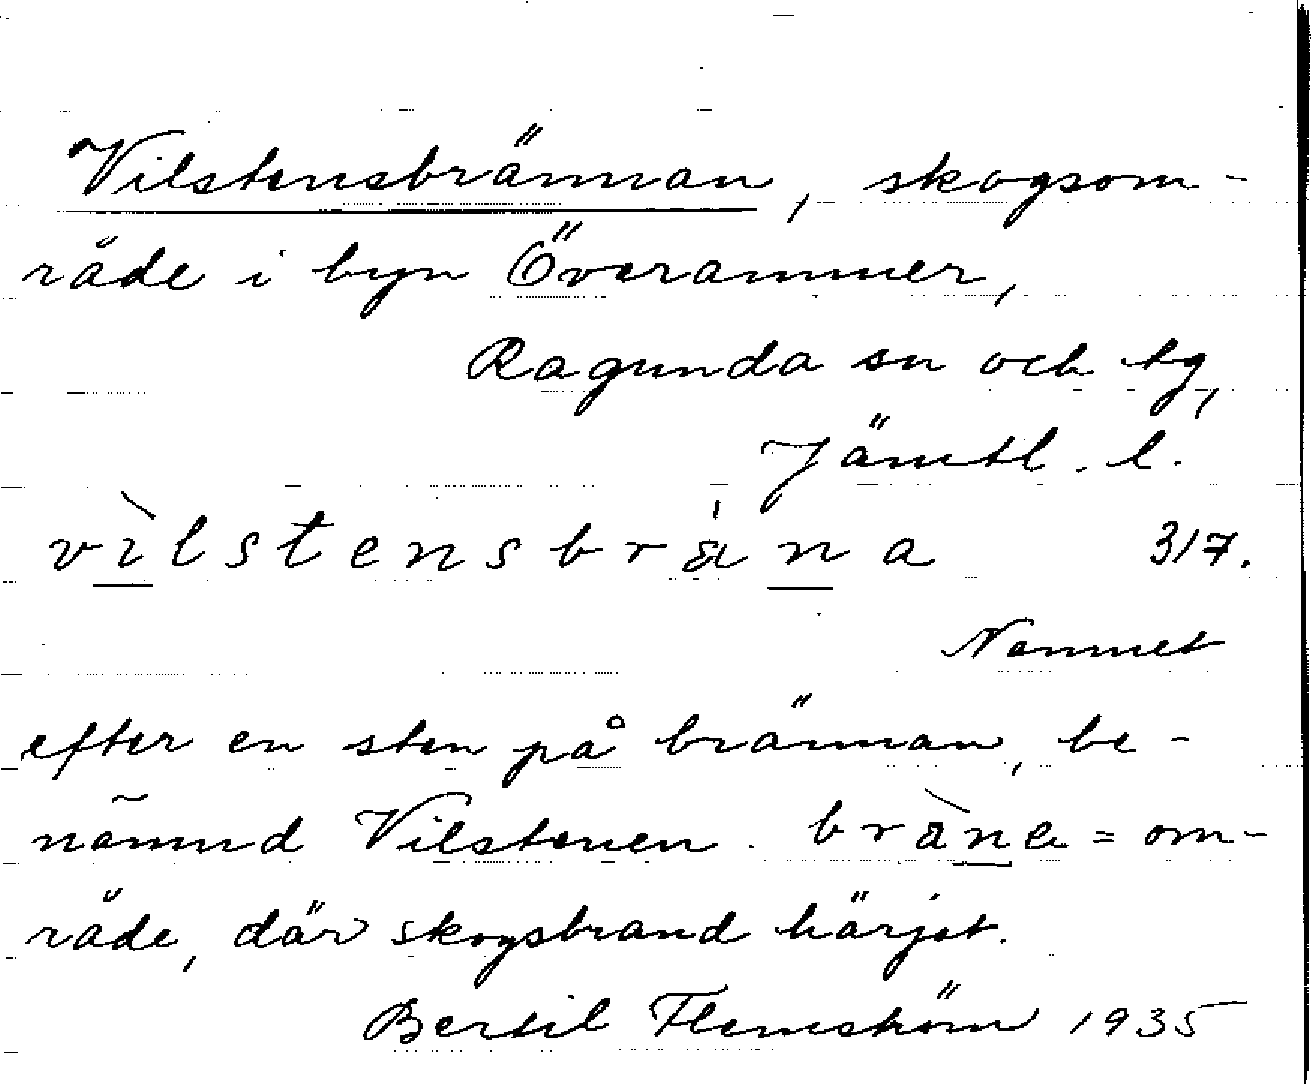 Vilstensbrännan, skogsom-
råde i byn Överammer,
Ragunda sn och tg,
Jämtl. l.
vìlstensbräna 317.
Namnet
efter en sten på brännan, be-
nämnd Vilstenen. bräne = om-
råde, där skogsbrand härjat.
Bertil Flemström 1935